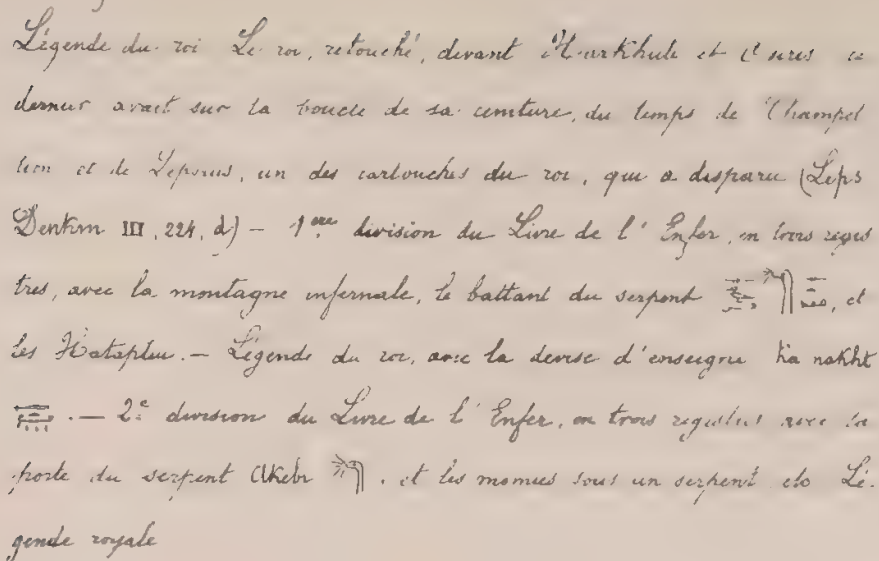 Légende du roi Le roi, retouché, devant Harkhuti et Osiris ce
dernier avait sur la boucle de sa ceinture, du temps de Champol
lion et de Lepsius, un des cartouches du roi, qui a disparu (Leps
Denkm III, 224, d) – 1ère division du Livre de l'Enfer, en trois regis
tres, avec la montagne infernale, le battant du serpent , et
les Hataptiu. – Légende du roi, avec la devise d'enseigne Ka nakht
. — 2e division du Livre de l'Enfer, en trois registres avec la
porte du serpent Akebi , et les momies sous un serpent etc Lé-
gende royale